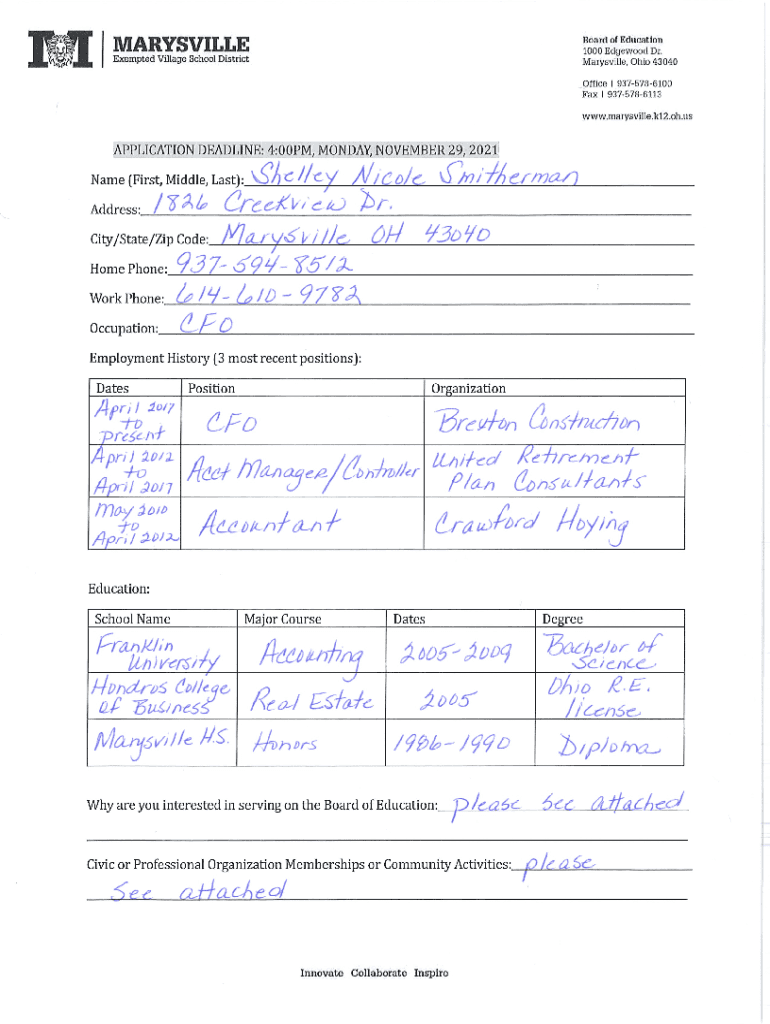 MARYSVILLE
Exempted Village School District
Board of Education
1000 Edgewood Dr.
Marysville, Ohio 43040
Office | 937-578-6100
Fax | 937-578-6113
www.marysville.k12.oh.us
APPLICATION DEADLINE: 4:00PM, MONDAY, NOVEMBER 29, 2021
Name (First, Middle, Last): Shelley Nicole Smitherman
Address: 1826 Creekview Dr.
City/State/Zip Code: Marysville OH 43040
Home Phone: 937-594-8512
Work Phone: 614-610-9782
Occupation: CFO
Employment History (3 most recent positions):
Dates Position Organization
April 2017
to
present
CFO
Brexton Construction
April 2012
to
April 2017
Acct Manager/Controller
United Retirement
Plan Consultants
May 2010
to
April 2012
Accountant
Crawford Hoying
Education:
School Name Major Course Dates Degree
Franklin
University
Accounting
2005-2009
Bachelor of
Science
Hondros College
of Business
Real Estate
2005
Ohio R.E.
license
Marysville H.S. Honors 1986-1990 Diploma
Why are you interested in serving on the Board of Education: please see attached
Civic or Professional Organization Memberships or Community Activities: please
see attached
Innovate Collaborate Inspire